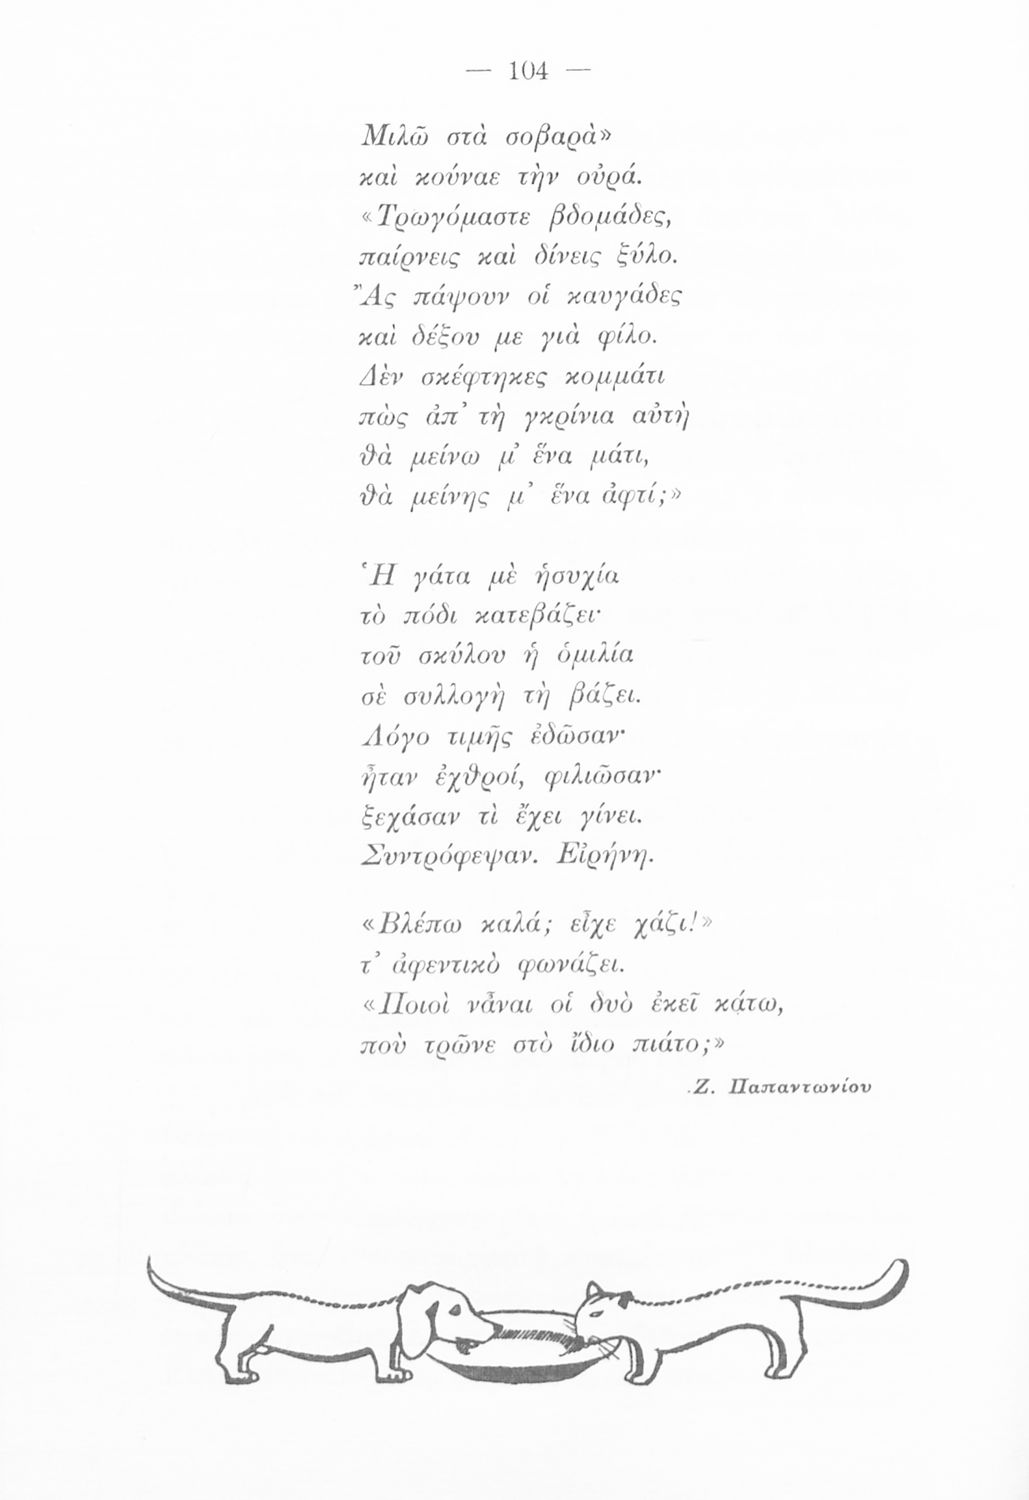 — 104 —
Μιλῶ στὰ σοβαρὰ»
καὶ κούναε τὴν οὐρά.
«Τρωγόμαστε βδομάδες,
παίρνεις καὶ δίνεις ξύλο.
Ἂς πάψουν οἱ καυγάδες
καὶ δέξου με γιὰ φίλο.
Δὲν σκέφτηκες κομμάτι
πὼς ἀπ’ τὴ γκρίνια αὐτὴ
θὰ μείνω μ’ ἕνα μάτι,
θὰ μείνης μ’ ἕνα ἀφτί;»
Ἡ γάτα μὲ ἡσυχία
τὸ πόδι κατεβάζει·
τοῦ σκύλου ἡ ὁμιλία
σὲ συλλογὴ τὴ βάζει.
Λόγο τιμῆς ἐδῶσαν·
ἦταν ἐχθροί, φιλιῶσαν·
ξεχάσαν τὶ ἔχει γίνει.
Συντρόφεψαν. Εἰρήνη.
«Βλέπω καλά; εἶχε χάζι!»
τ’ ἀφεντικὸ φωνάζει.
«Ποιοὶ νἆναι οἱ δυὸ ἐκεῖ κάτω,
ποὺ τρῶνε στὸ ἴδιο πιάτο;»
Ζ. Παπαντωνίου